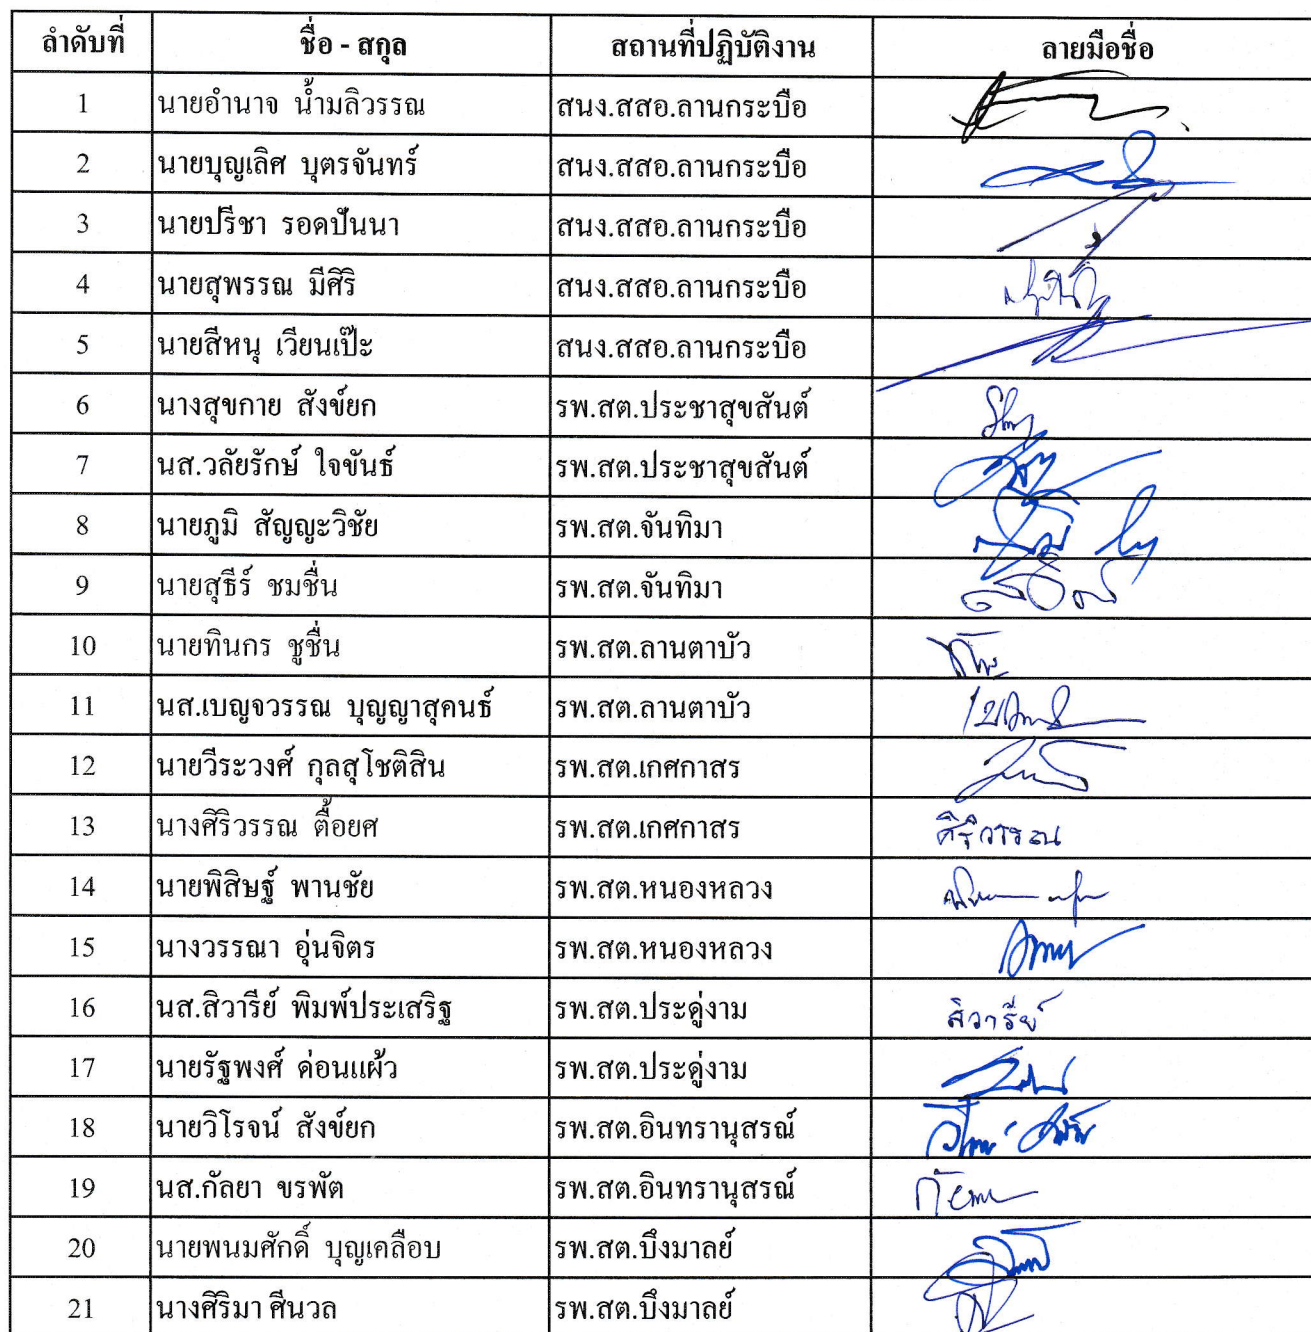 ลำดับที่ ชื่อ - สกุล สถานที่ปฏิบัติงาน ลายมือชื่อ
1 นายอำนาจ น้ำมลิวรรณ สนง.สสอ.ลานกระบือ
2 นายบุญเลิศ บุตรจันทร์ สนง.สสอ.ลานกระบือ
3 นายปรีชา รอดปันนา สนง.สสอ.ลานกระบือ
4 นายสุพรรณ มีศิริ สนง.สสอ.ลานกระบือ
5 นายสีหนุ เวียนเป๊ะ สนง.สสอ.ลานกระบือ
6 นางสุขกาย สังข์ยก รพ.สต.ประชาสุขสันต์
7 นส.วลัยรักษ์ ใจขันธ์ รพ.สต.ประชาสุขสันต์
8 นายภูมิ สัญญะวิชัย รพ.สต.จันทิมา
9 นายสุธีร์ ชมชื่น รพ.สต.จันทิมา
10 นายทินกร ชูชื่น รพ.สต.ลานตาบัว
11 นส.เบญจวรรณ บุญญาสุคนธ์ รพ.สต.ลานตาบัว
12 นายวีระวงศ์ กุลสุโชติสิน รพ.สต.เกศกาสร
13 นางศิริวรรณ ตื้อยศ รพ.สต.เกศกาสร ศิริวรรณ
14 นายพิสิษฐ์ พานชัย รพ.สต.หนองหลวง
15 นางวรรณา อุ่นจิตร รพ.สต.หนองหลวง
16 นส.สิวารีย์ พิมพ์ประเสริฐ รพ.สต.ประดู่งาม สิวารีย์
17 นายรัฐพงศ์ ค่อนแผ้ว รพ.สต.ประดู่งาม
18 นายวิโรจน์ สังข์ยก รพ.สต.อินทรานุสรณ์
19 นส.กัลยา ขรพัต รพ.สต.อินทรานุสรณ์
20 นายพนมศักดิ์ บุญเคลือบ รพ.สต.บึงมาลย์
21 นางศิริมา ศีนวล รพ.สต.บึงมาลย์